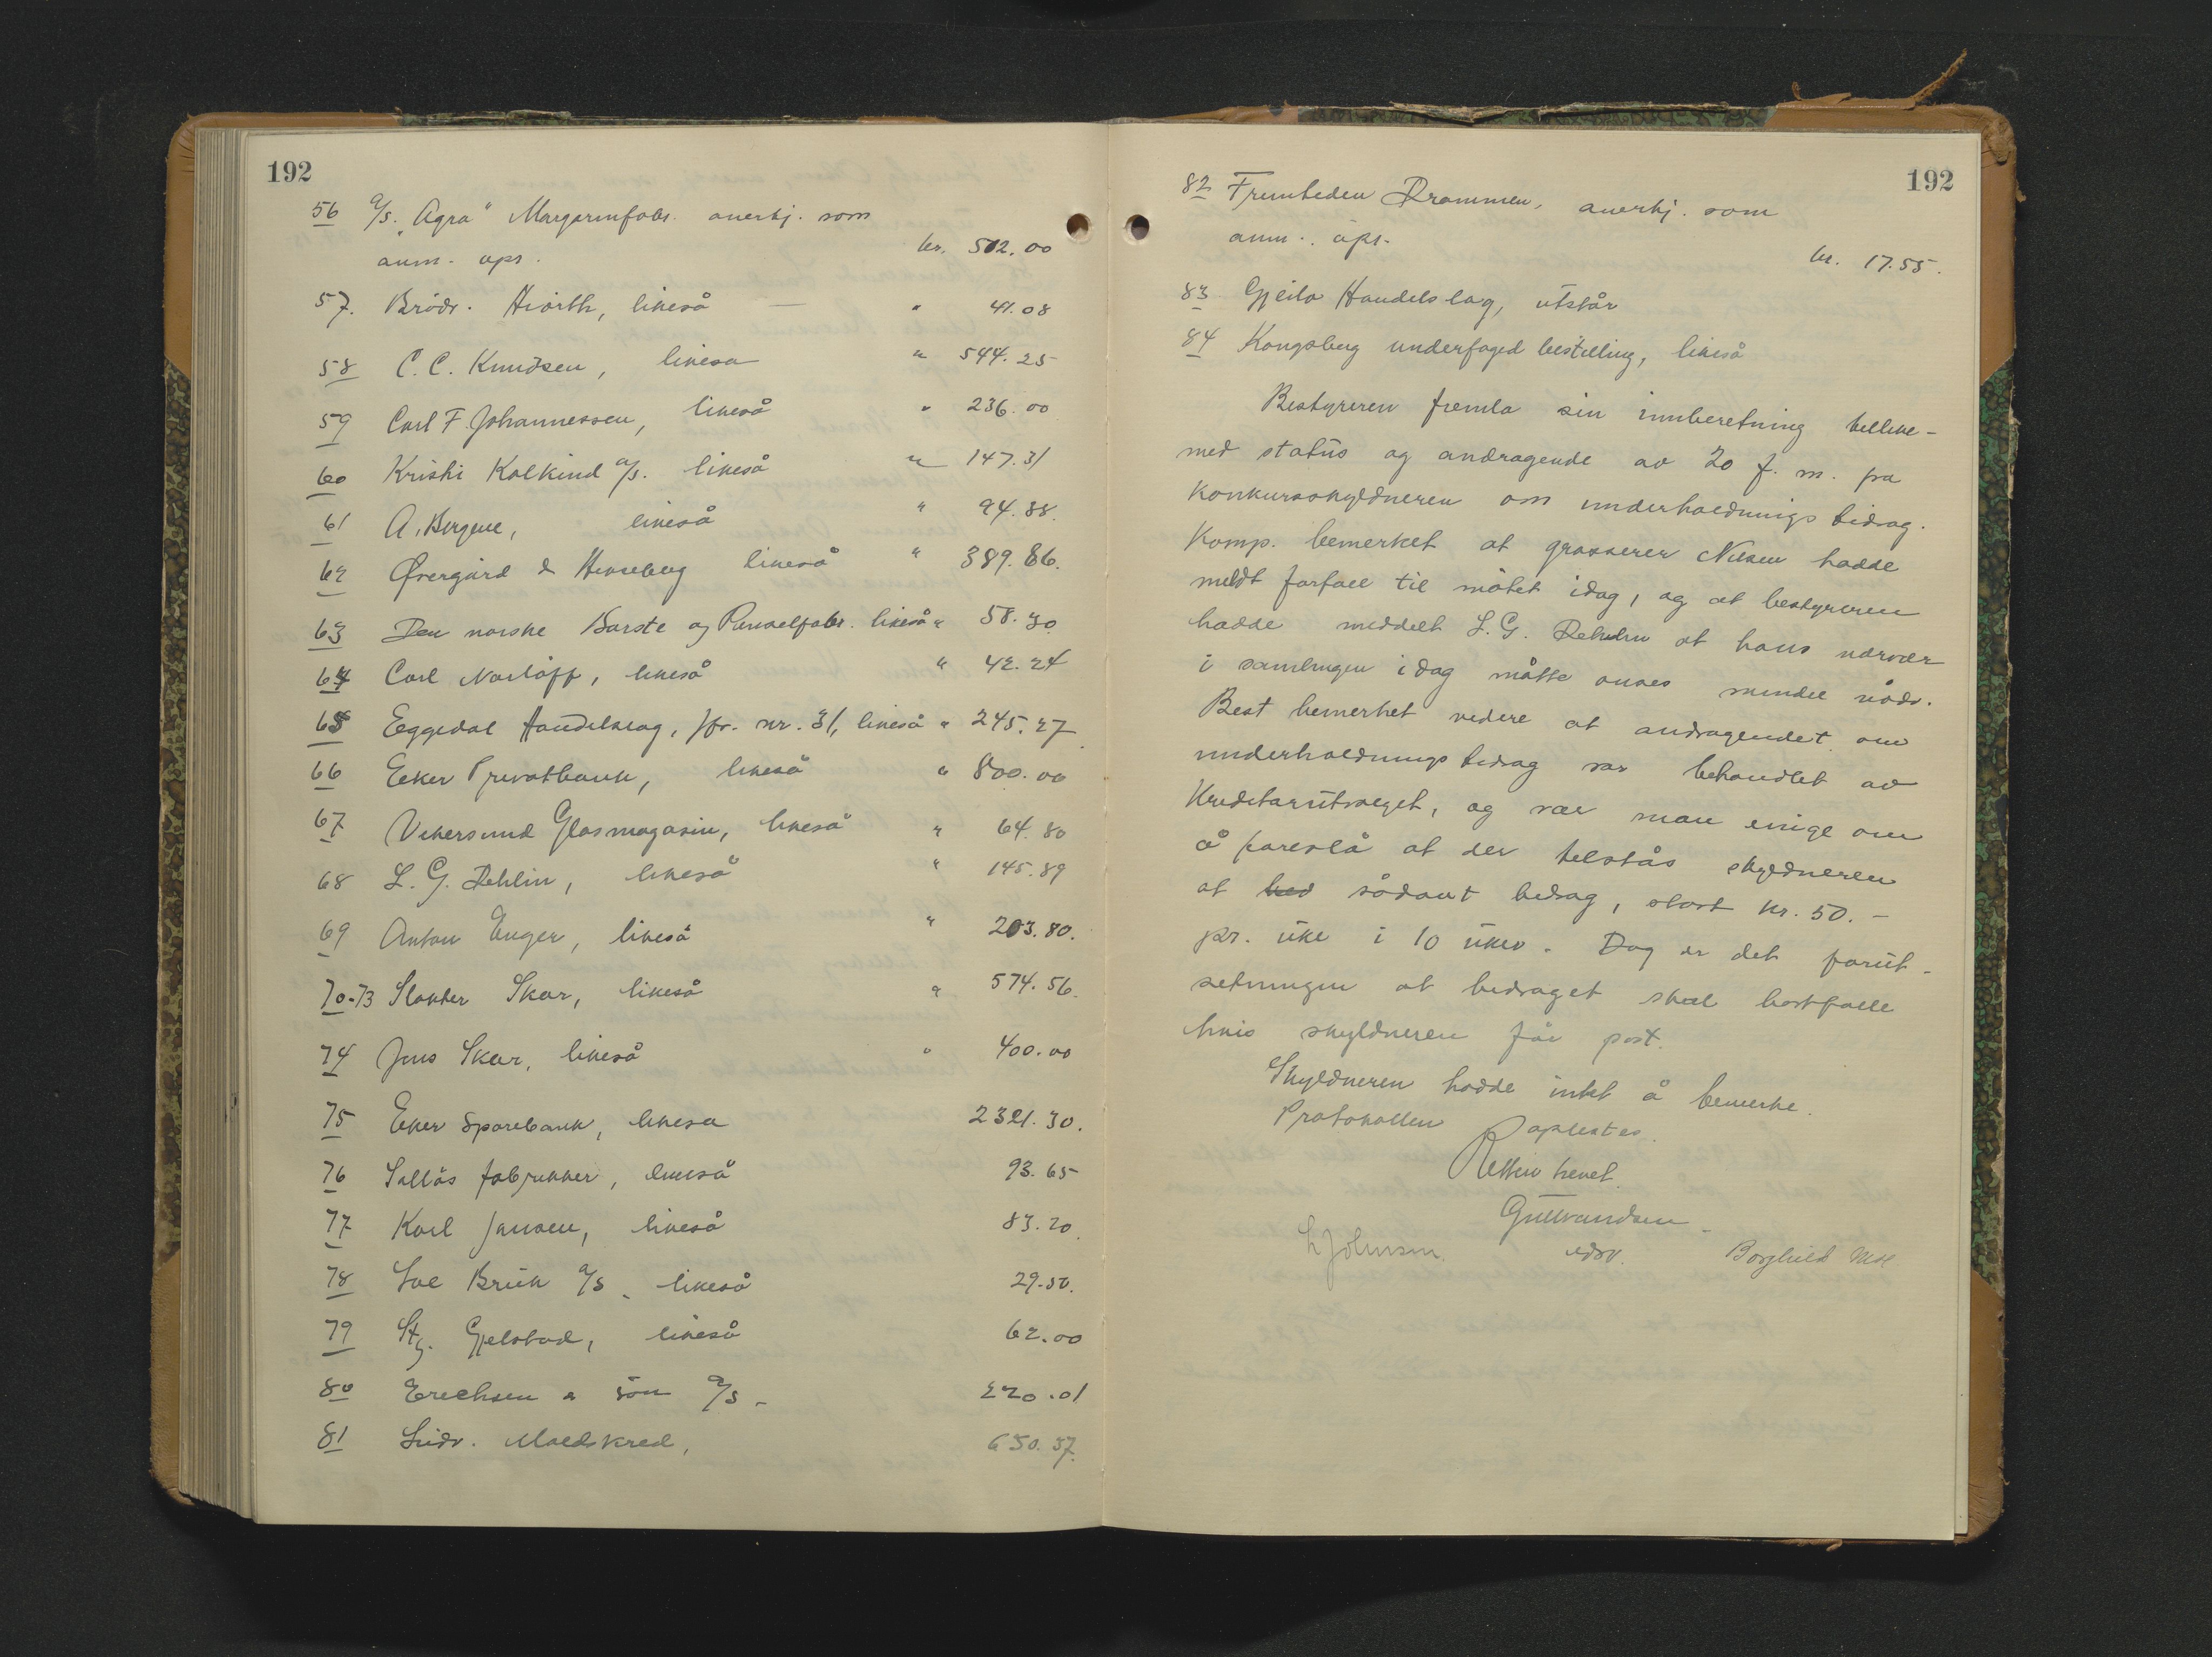 192
56 A/S. „Agra" Margarinfabr. anerkj. som
anm. opr. kr. 502.00
57. Brödr. Hiorth, likeså — " 41.08
58 C. C. Knudsen, likeså " 544.25
59 Carl F. Johannessen, likeså " 236.00
60 Kristi Kalkind A/S. likeså " 147.31
61 A. Bergene, likeså " 94.88.
62 Øvergård & Henseberg likeså " 389.86.
63 Den norske Børste og Penselfabr. likeså " 58.30
64 Carl Norløff, likeså " 42.24
65 Eggedal Handelslag, jfr. nr. 31, likeså " 245.27
66 Eker Privatbank, likeså " 800.00
67 Vikersund Glasmagasin, likeså " 64.80
68 L. G. Dehlin, likeså " 145.89
69 Anton Enger, likeså " 203.80.
70-73 Slakter Skar, likeså " 574.56.
74 Jens Skar, likeså " 400.00
75 Eker Sparebank, likeså 2321.30.
76 Solläs fabrikker, likeså 93.65
77 Karl Jansen, likeså 83.20.
78 Soe Bruk A/S. likeså 29.50.
79 St. Gjelstad, likeså 62.00
80 Erechsen & Sön A/S - 220.01
81 Ludv. Moldskred, 650.57.
192
82 Fremtiden Drammen, anerkj. som
anm. opr. kr. 17.55.
83 Gjeilo Handelslag, utstår
84 Kongsberg underfoged bestilling, likeså
Bestyreren fremla sin innberetning tillike-
med status og andragende av 20 f. m. fra
konkursskyldneren om underholdnings bidrag.
Komp. bemerket at grosserer Nilsen hadde
meldt forfall til mötet idag, og at bestyreren
hadde meddelt L. G. Dehlin at hans nærvær
i samlingen idag måtte anses mindre nödv.
Best bemerket videre at andragendet om
underholdnings bidrag var behandlet av
Kreditorutvalget, og var man enige om
å foreslå at der tilstås skyldneren
et sådant bidrag, stort kr. 50.-
pr. uke i 10 uker. Dog er det forut-
setningen at bidraget skal bortfalle
hvis skyldneren får post.
Skyldneren hadde intet å bemerke.
Protokollen oplestes.
Retten hevet.
Gulbrandsen
L Johnsen. edsv. Borghild Moe